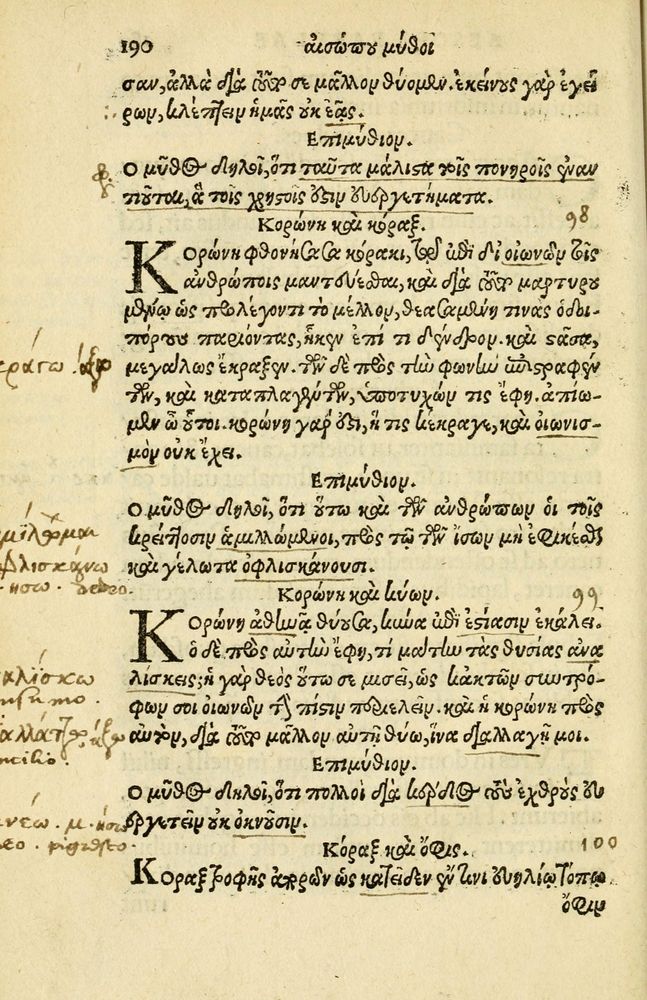 190 αἰσώπου μῦθοι
σαν, ἀλλὰ διὰ τοῦτό σε μᾶλλον θύομεν. ἐκείνους γὰρ ἐγεί
ρων, κλέπτειν ἡμᾶς οὐκ ἐᾷς.
Ἐπιμύθιον.
Ὁ μῦθος δηλοῖ, ὅτι ταῦτα μάλιστα τοῖς πονηροῖς ἐναν
τιοῦται, ἃ τοῖς χρηστοῖς ἐστιν εὐεργετήματα.
Κορώνη καὶ κόραξ. 98
Κορώνη φθονήσασα κόρακι, ἐπὶ τῷ δι' οἰωνῶν τοῖς
ἀνθρώποις μαντεύεσθαι, καὶ διὰ τοῦτο μαρτυρου
μένῳ ὡς προλέγοντι τὸ μέλλον, θεασαμένη τινὰς ὁδοι-
πόρους παριόντας, ἧκεν ἐπί τι δένδρον. καὶ στᾶσα,
μεγάλως ἔκραξεν. τῶν δὲ πρὸς τὴν φωνὴν ἐπιστραφέν
των, καὶ καταπλαγέντων, ὑποτυχών τις ἔφη. ἀπίω-
μεν ὦ οὗτοι. κορώνη γάρ ἐστι, ἥ τις κέκραγε, καὶ οἰωνισ-
μὸν οὐκ ἔχει.
Ἐπιμύθιον.
Ὁ μῦθος δηλοῖ, ὅτι οὕτω καὶ τῶν ἀνθρώπων οἱ τοῖς
κρείττοσιν ἁμιλλώμενοι, πρὸς τῷ τῶν ἴσων μὴ ἐφικέσθαι
καὶ γέλωτα ὀφλισκάνουσι.
Κορώνη καὶ κύων. 99
Κορώνη ἀθηνᾷ θύουσα, κύνα ἐπὶ ἑστίασιν ἐκάλει.
ὁ δὲ πρὸς αὐτὴν ἔφη, τί μάτην τὰς θυσίας ἀνα
λίσκεις; ἡ γὰρ θεὸς οὕτω σε μισεῖ, ὡς κἀκ τῶν συντρό-
φων σοι οἰωνῶν τὴν πίστιν περιελεῖν. καὶ ἡ κορώνη πρὸς
αὐτόν, διὰ τοῦτο μᾶλλον αὐτῇ θύω, ἵνα διαλλαγῇ μοι.
Ἐπιμύθιον.
Ὁ μῦθος δηλοῖ, ὅτι πολλοὶ διὰ κέρδος τοὺς ἐχθροὺς εὐ
εργετεῖν οὐκ ὀκνοῦσιν.
Κόραξ καὶ ὄφις. 100
Κόραξ τροφῆς ἀπορῶν ὡς κατεῖδεν ἔν τινι εὐηλίῳ τόπῳ
ὄφιν
ὀφλισκάνω
debeo.
αλίσκω
nsumo.
ncilio.